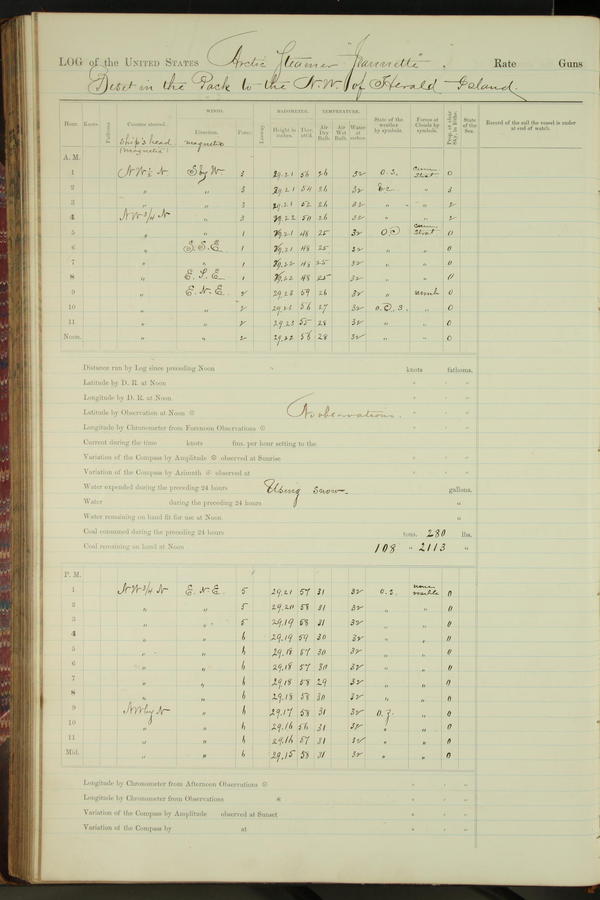 LOG of the UNITED STATES Arctic Steamer "Jeannette". Rate Guns
Beset in the Pack to the N.W. of Herald Island.
Hour. Knots. Fathoms. Courses steered. WINDS. Direction. Force. Leeway. BAROMETER. Height in inches. Ther. att'd. TEMPERATURE. Air Dry Bulb. Air Wet Bulb. Water at surface. State of the weather by symbols. Forms of Clouds by symbols. Prop. of clear Sky, in 10ths. State of the Sea. Record of the sail the vessel is under at end of watch.
ship's head (magnetic) magnetic
A. M.
1 NW ½ N S by W 3 29.21 56 26 32 o.s. Strat 0
2 " " 3 29.21 54 26 32 b.c. " 3
3 " " 3 29.21 52 26 32 " " 2
4 NW 3/4 N " 3 29.22 50 26 32 " " 2
5 " " 1 29.21 48 25 32 Strat 0
6 " S.S.E. 1 29.21 48 25 32 " " 0
7 " " 1 29.22 48 25 32 " " 0
8 " E.S.E. 1 29.22 48 25 32 " " 0
9 " E.N.E. 2 29.23 59 26 32 " 0
10 " " 2 29.23 56 27 32 " 0
11 " " 2 29.23 55 28 32 " " 0
Noon. " " 2 29.22 56 28 32 " " 0
Distance run by Log since preceding Noon knots fathoms.
Latitude by D. R. at Noon
Longitude by D. R. at Noon
Latitude by Observation at Noon No observations.
Longitude by Chronometer from Forenoon Observations
Current during the time knots fms. per hour setting to the
Variation of the Compass by Amplitude observed at Sunrise
Variation of the Compass by Azimuth observed at
Water expended during the preceding 24 hours Using snow. gallons.
Water during the preceding 24 hours "
Water remaining on hand fit for use at Noon "
Coal consumed during the preceding 24 hours tons. 280 lbs.
Coal remaining on hand at Noon 108 " 2113 "
P. M.
1 NW 3/4 N E.N.E. 5 29.21 57 31 32 o.s. none visible 0
2 " " 5 29.20 58 31 32 " " 0
3 " " 5 29.19 58 31 32 " " 0
4 " " 6 29.19 59 30 32 " " 0
5 " " 6 29.18 57 30 32 " " 0
6 " " 6 29.18 57 30 32 " " 0
7 " " 6 29.18 58 29 32 " " 0
8 " " 6 29.18 58 30 32 " " 0
9 NW by N " 6 29.17 58 31 32 " 0
10 " " 6 29.16 56 31 32 " " 0
11 " " 6 29.16 57 31 32 " " 0
Mid. " " 6 29.15 58 31 32 " " 0
Longitude by Chronometer from Afternoon Observations
Longitude by Chronometer from Observations
Variation of the Compass by Amplitude observed at Sunset
Variation of the Compass by at